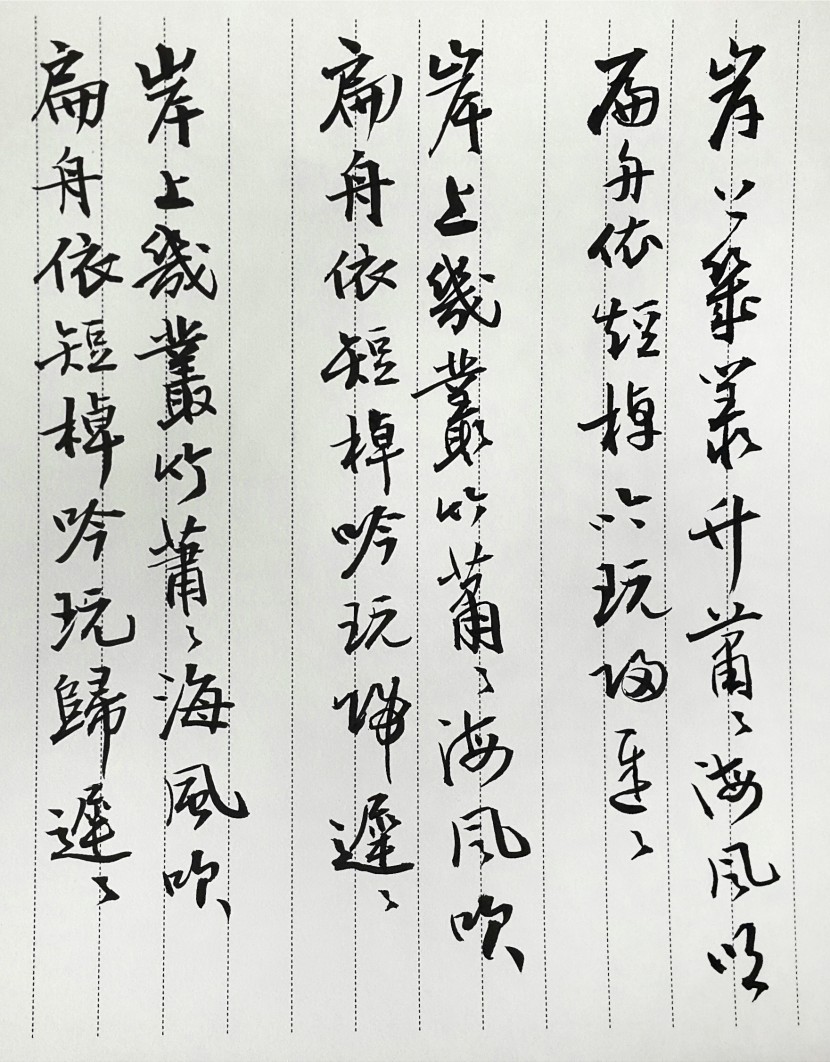 岸上幾叢竹蕭〻海風吹
扁舟依短棹吟玩歸遲〻
岸上幾叢竹蕭〻海風吹
扁舟依短棹吟玩歸遲〻
岸上幾叢竹蕭〻海風吹
扁舟依短棹吟玩歸遲〻